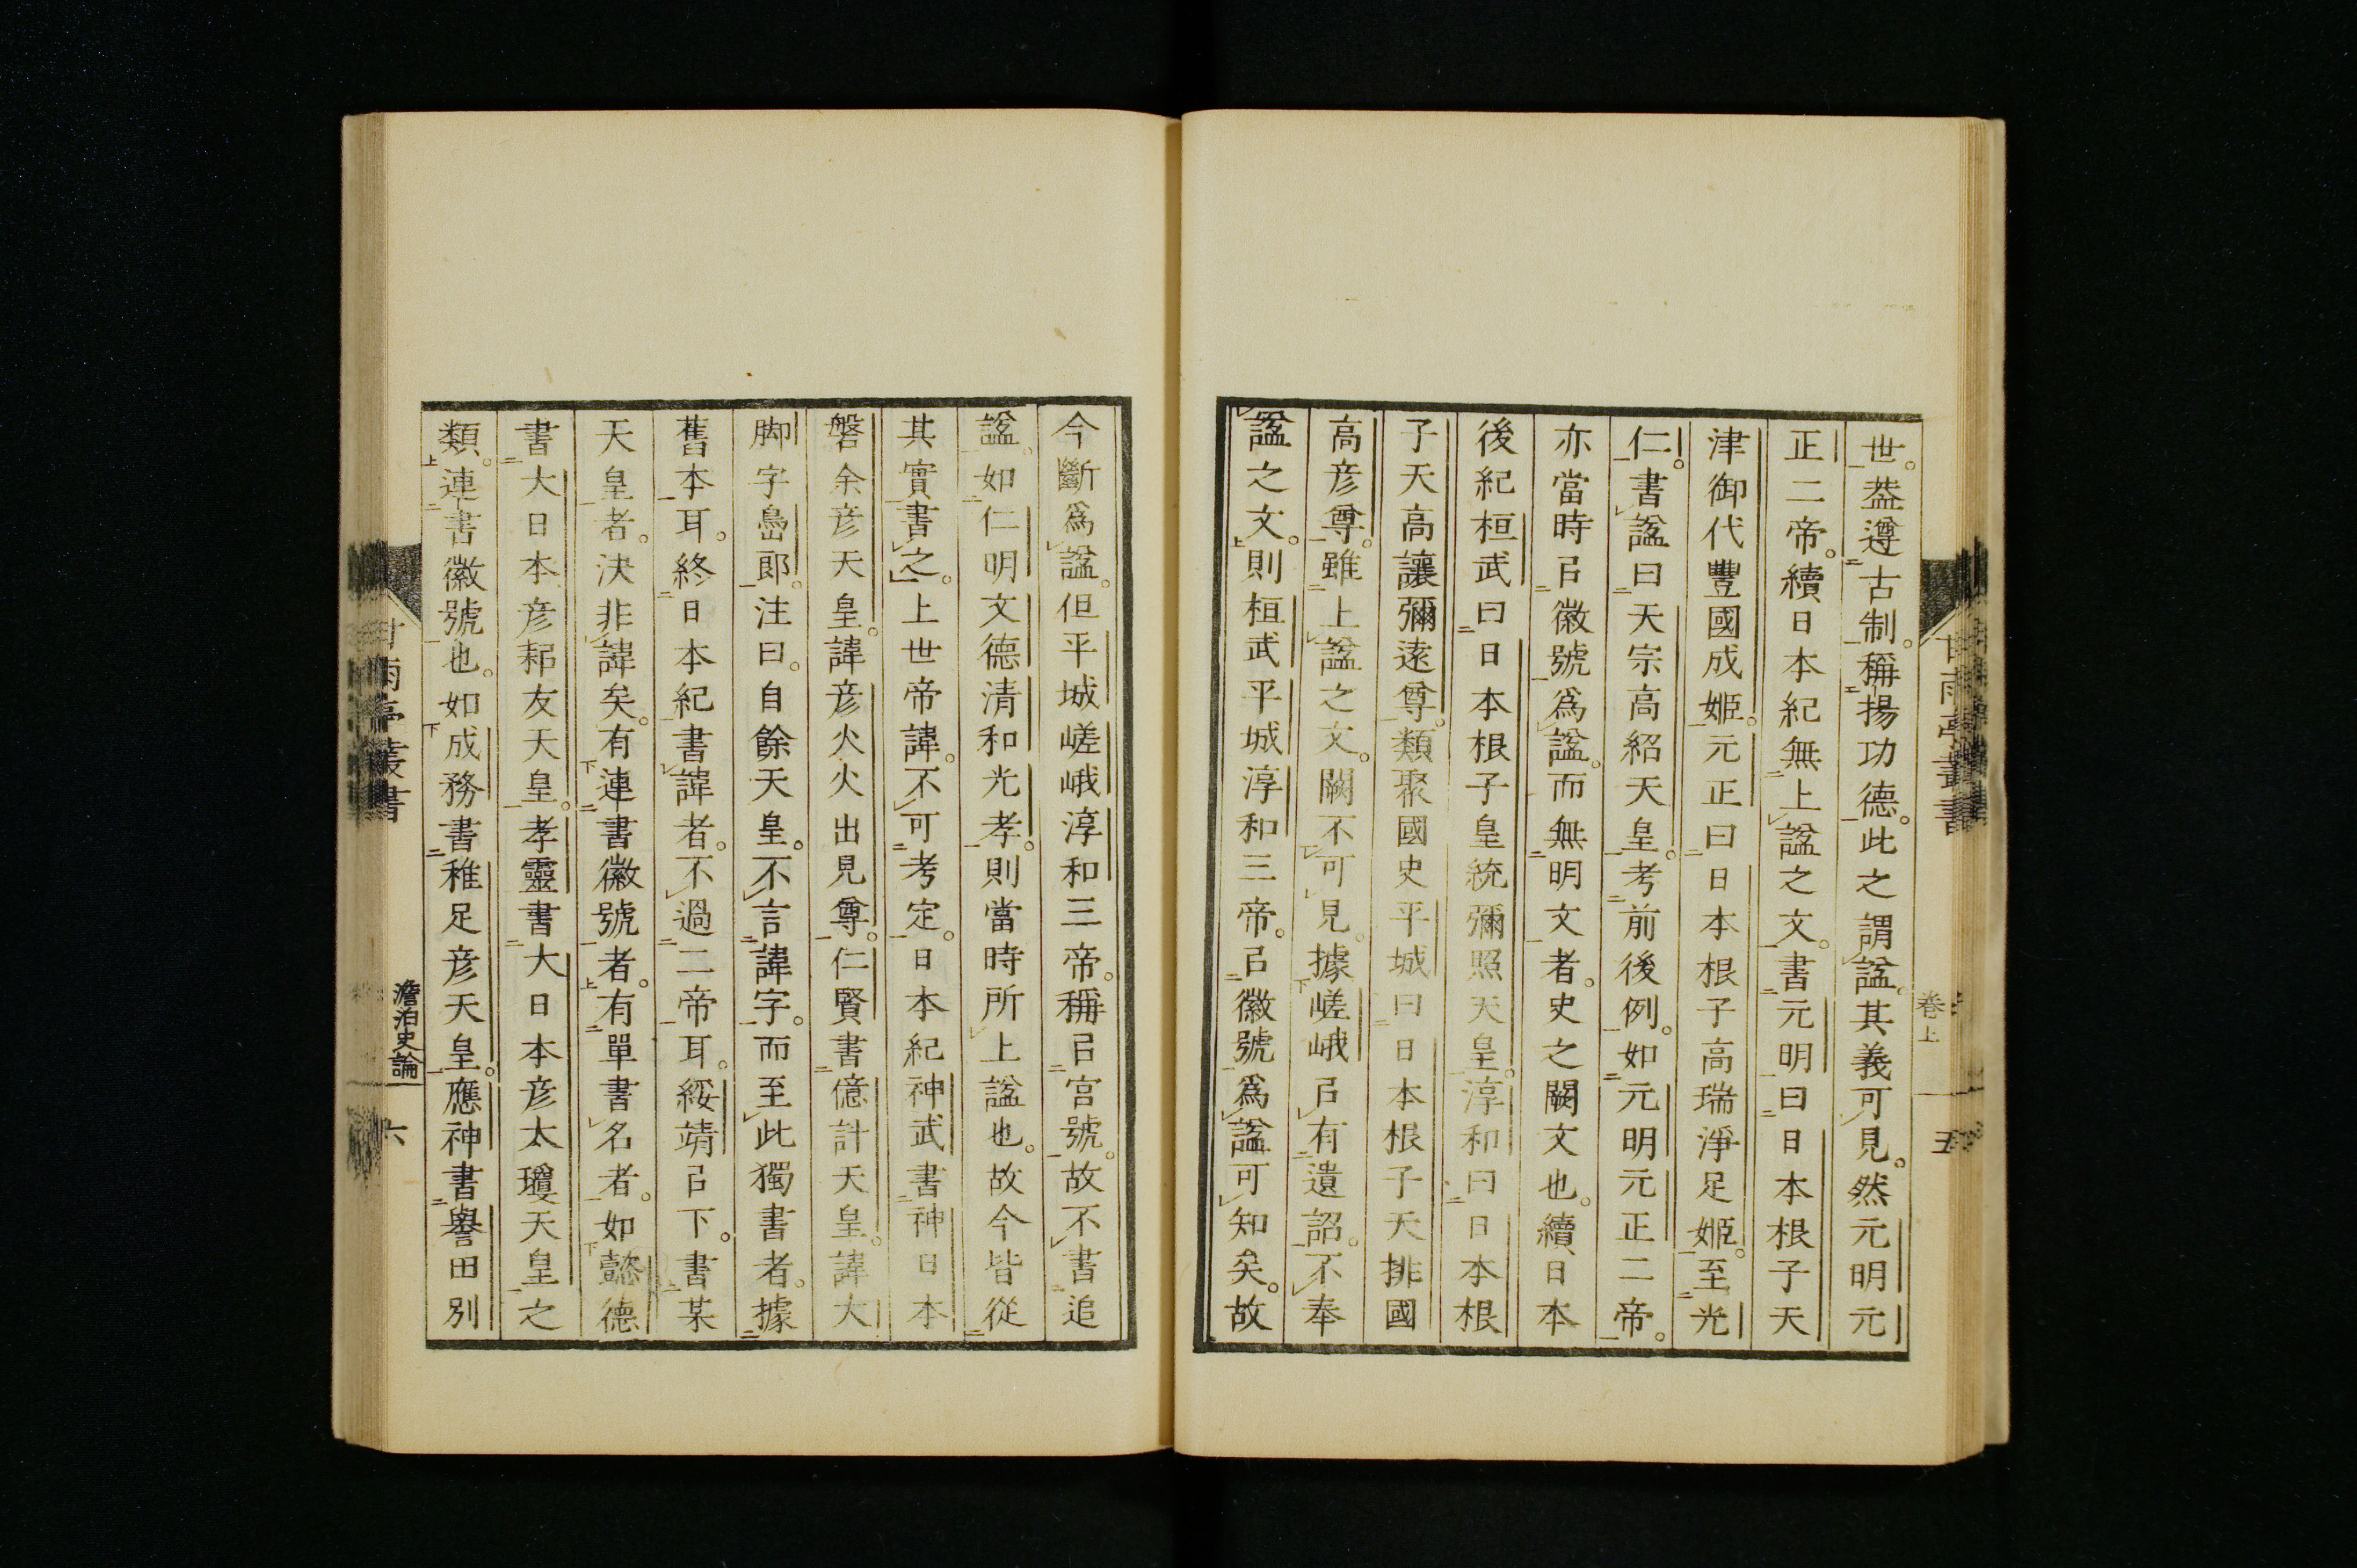 世。葢遵古制。稱揚功德。此之謂諡。其義可見。然元明元
正二帝。續日本紀無上諡之文。書元明曰日本根子天
津御代豐國成姬。元正曰日本根子高瑞淨足姬。至光
仁。書諡曰天宗高紹天皇。考前後例。如元明元正二帝。
亦當時㠯徽號爲諡。而無明文者。史之闕文也。續日本
後紀桓武曰日本根子皇統彌照天皇。淳和曰日本根
子天高讓彌遠尊。類聚國史平城曰日本根子天排國
高彦尊。雖上諡之文。闕不可見。據嵯峨㠯有遺詔。不奉
諡之文。則桓武平城淳和三帝。㠯徽號爲諡可知矣。故
甘雨亭叢書
卷上
五
今斷爲諡。但平城嵯峨淳和三帝。稱㠯宮號。故不書追
諡。如仁明文德清和光孝。則當時所上諡也。故今皆從
其實書之」上世帝諱。不可考定。日本紀神武書神日本
磐余彦天皇。諱彦火火出見尊。仁賢書億計天皇。諱大
脚字嶋郎。注曰。自餘天皇。不言諱字。而至此獨書者。據
舊本耳。終日本紀書諱者。不過二帝耳。綏靖㠯下。書某
天皇者。決非諱矣。有連書徽號者。有單書名者。如懿德
書大日本彦耜友天皇。孝靈書大日本彦太瓊天皇之
類。連書徽號也。如成務書稚足彦天皇。應神書譽田別
甘雨亭叢書
澹泊史論
六